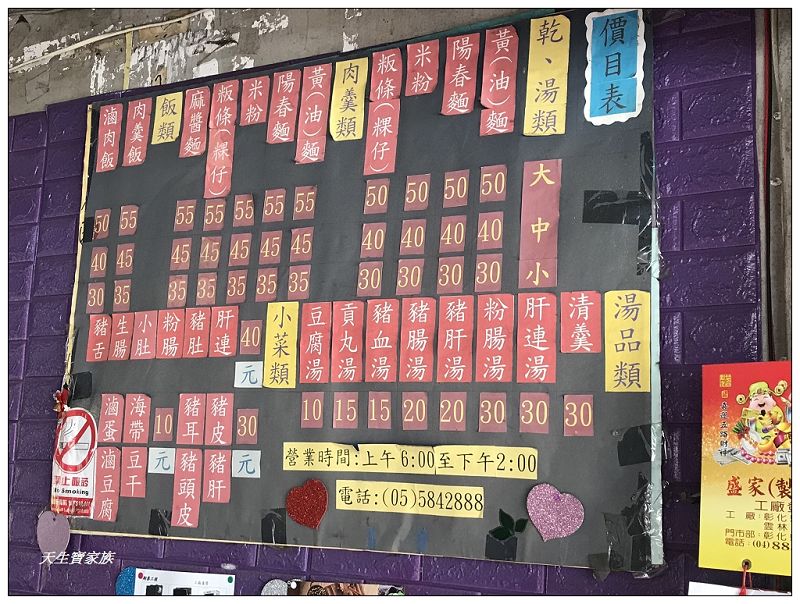 價目表
乾、湯類 大 中 小
黃(油)麵 50 40 30
陽春麵 50 40 30
米粉 50 40 30
粄條(粿仔) 50 40 30
肉羹類
黃(油)麵 55 45 35
陽春麵 55 45 35
米粉 55 45 35
粄條(粿仔) 55 45 35
麻醬麵 55 45 35
飯類
肉羹飯 55 45 35
滷肉飯 50 40 30
湯品類
清羹 30
肝連湯 30
粉腸湯 30
豬肝湯 20
豬腸湯 20
豬血湯 15
貢丸湯 15
豆腐湯 10
小菜類
肝連 豬肚 粉腸 小肚 生腸 豬舌 40元
豬皮 豬耳 豬肝 豬頭皮 30元
海帶 滷蛋 豆干 滷豆腐 10元
營業時間:上午6:00至下午2:00
電話:(05)5842888
No Smoking
盛家(製
工廠
工廠:彰化
雲林
門市部:彰化
電話:(04)88
天生寶家族